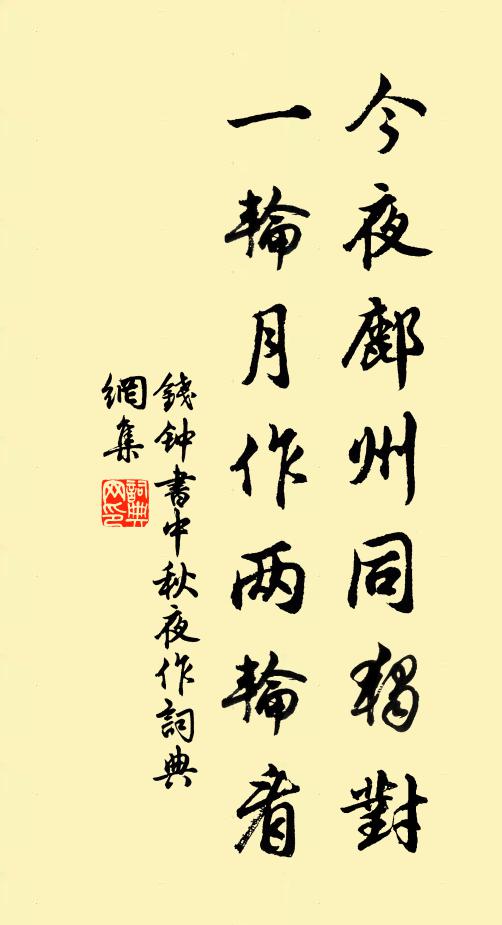 今夜鄜州同独對
一輪月作两輪看
錢钟書中秋夜作詞典
網集
詞典
网印